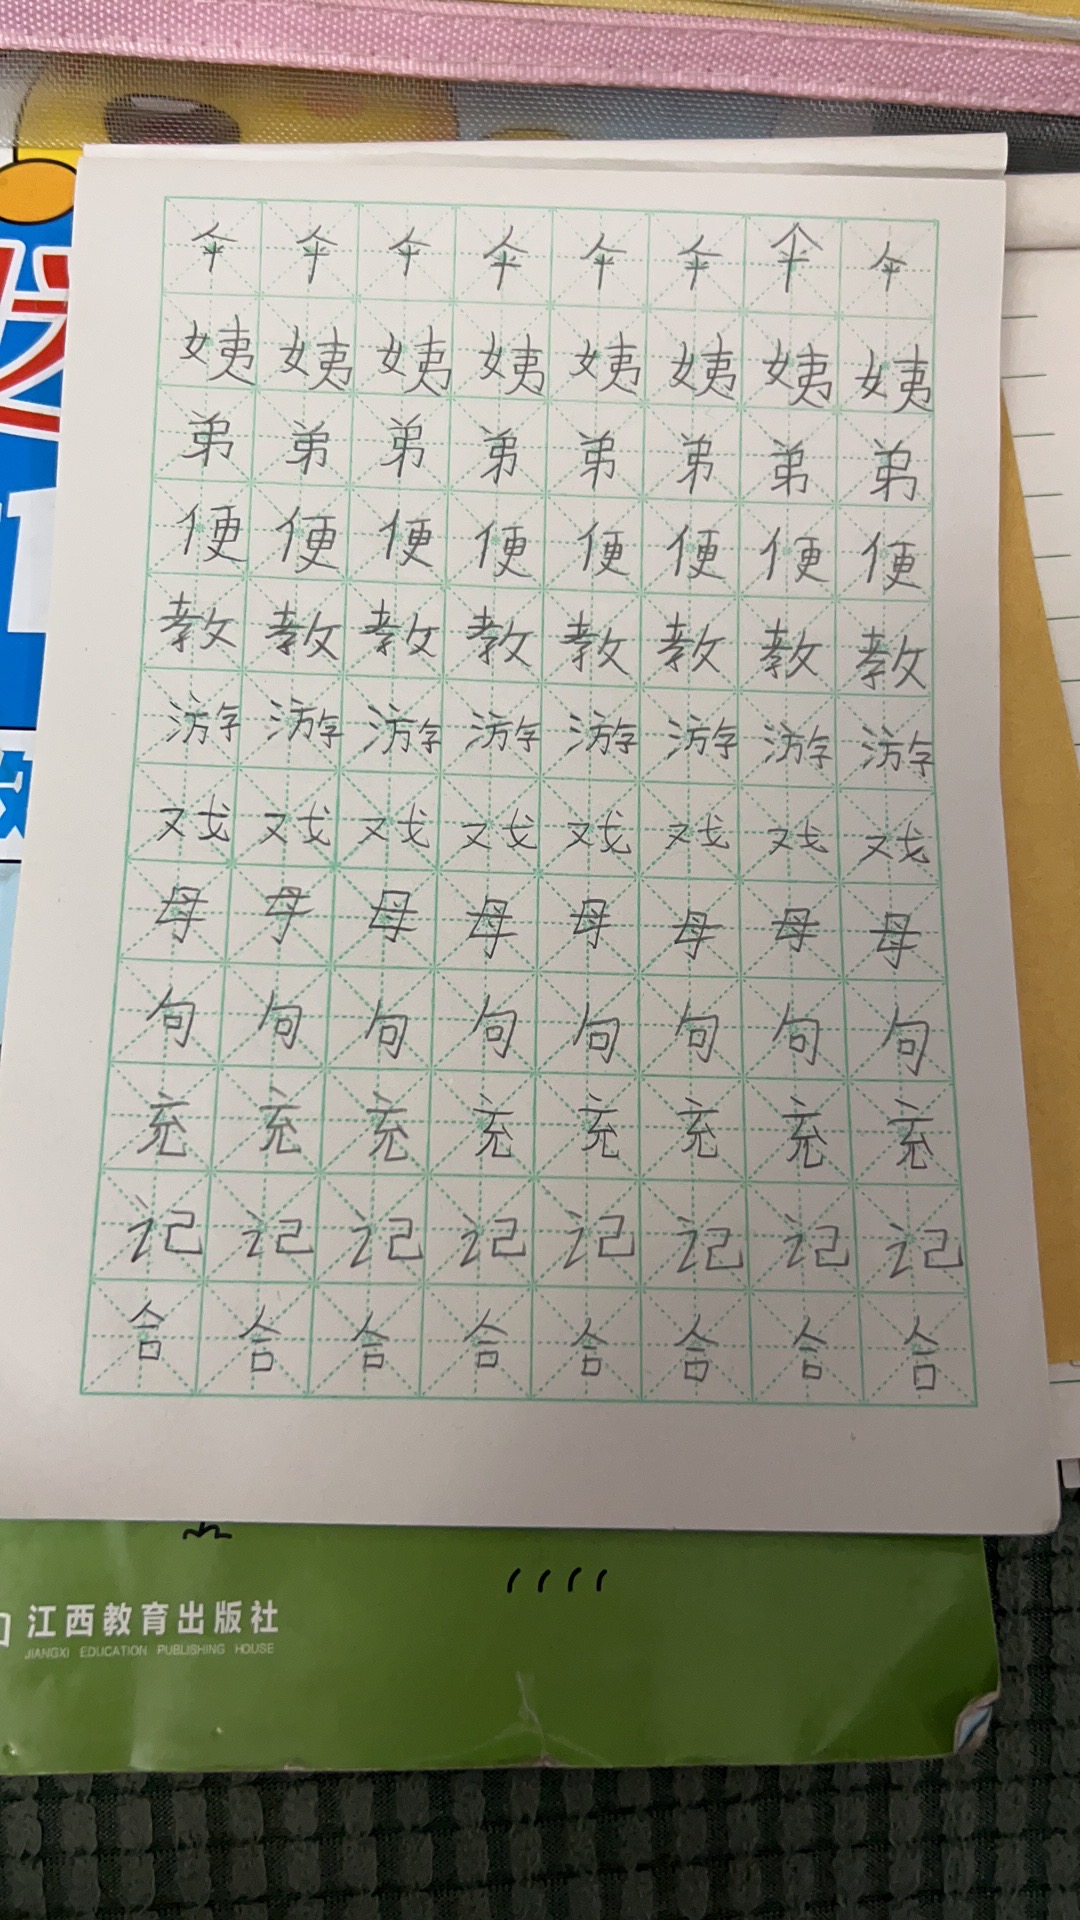 伞 伞 伞 伞 伞 伞 伞 伞
姨 姨 姨 姨 姨 姨 姨 姨
弟 弟 弟 弟 弟 弟 弟 弟
便 便 便 便 便 便 便 便
教 教 教 教 教 教 教 教
游 游 游 游 游 游 游 游
戏 戏 戏 戏 戏 戏 戏 戏
母 母 母 母 母 母 母 母
句 句 句 句 句 句 句 句
充 充 充 充 充 充 充 充
记 记 记 记 记 记 记 记
合 合 合 合 合 合 合 合
江西教育出版社
JIANGXI EDUCATION PUBLISHING HOUSE